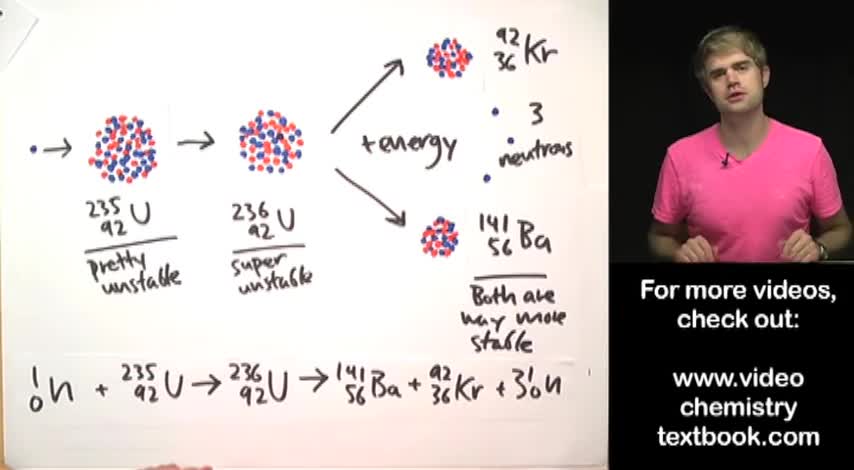 ⁹²₃₆Kr
3
neutrons
+ energy
²³⁵₉₂U
pretty
unstable
²³⁶₉₂U
super
unstable
¹⁴¹₅₆Ba
Both are
way more
stable
¹₀n + ²³⁵₉₂U → ²³⁶₉₂U → ¹⁴¹₅₆Ba + ⁹²₃₆Kr + 3¹₀n
For more videos,
check out:
www.video
chemistry
textbook.com